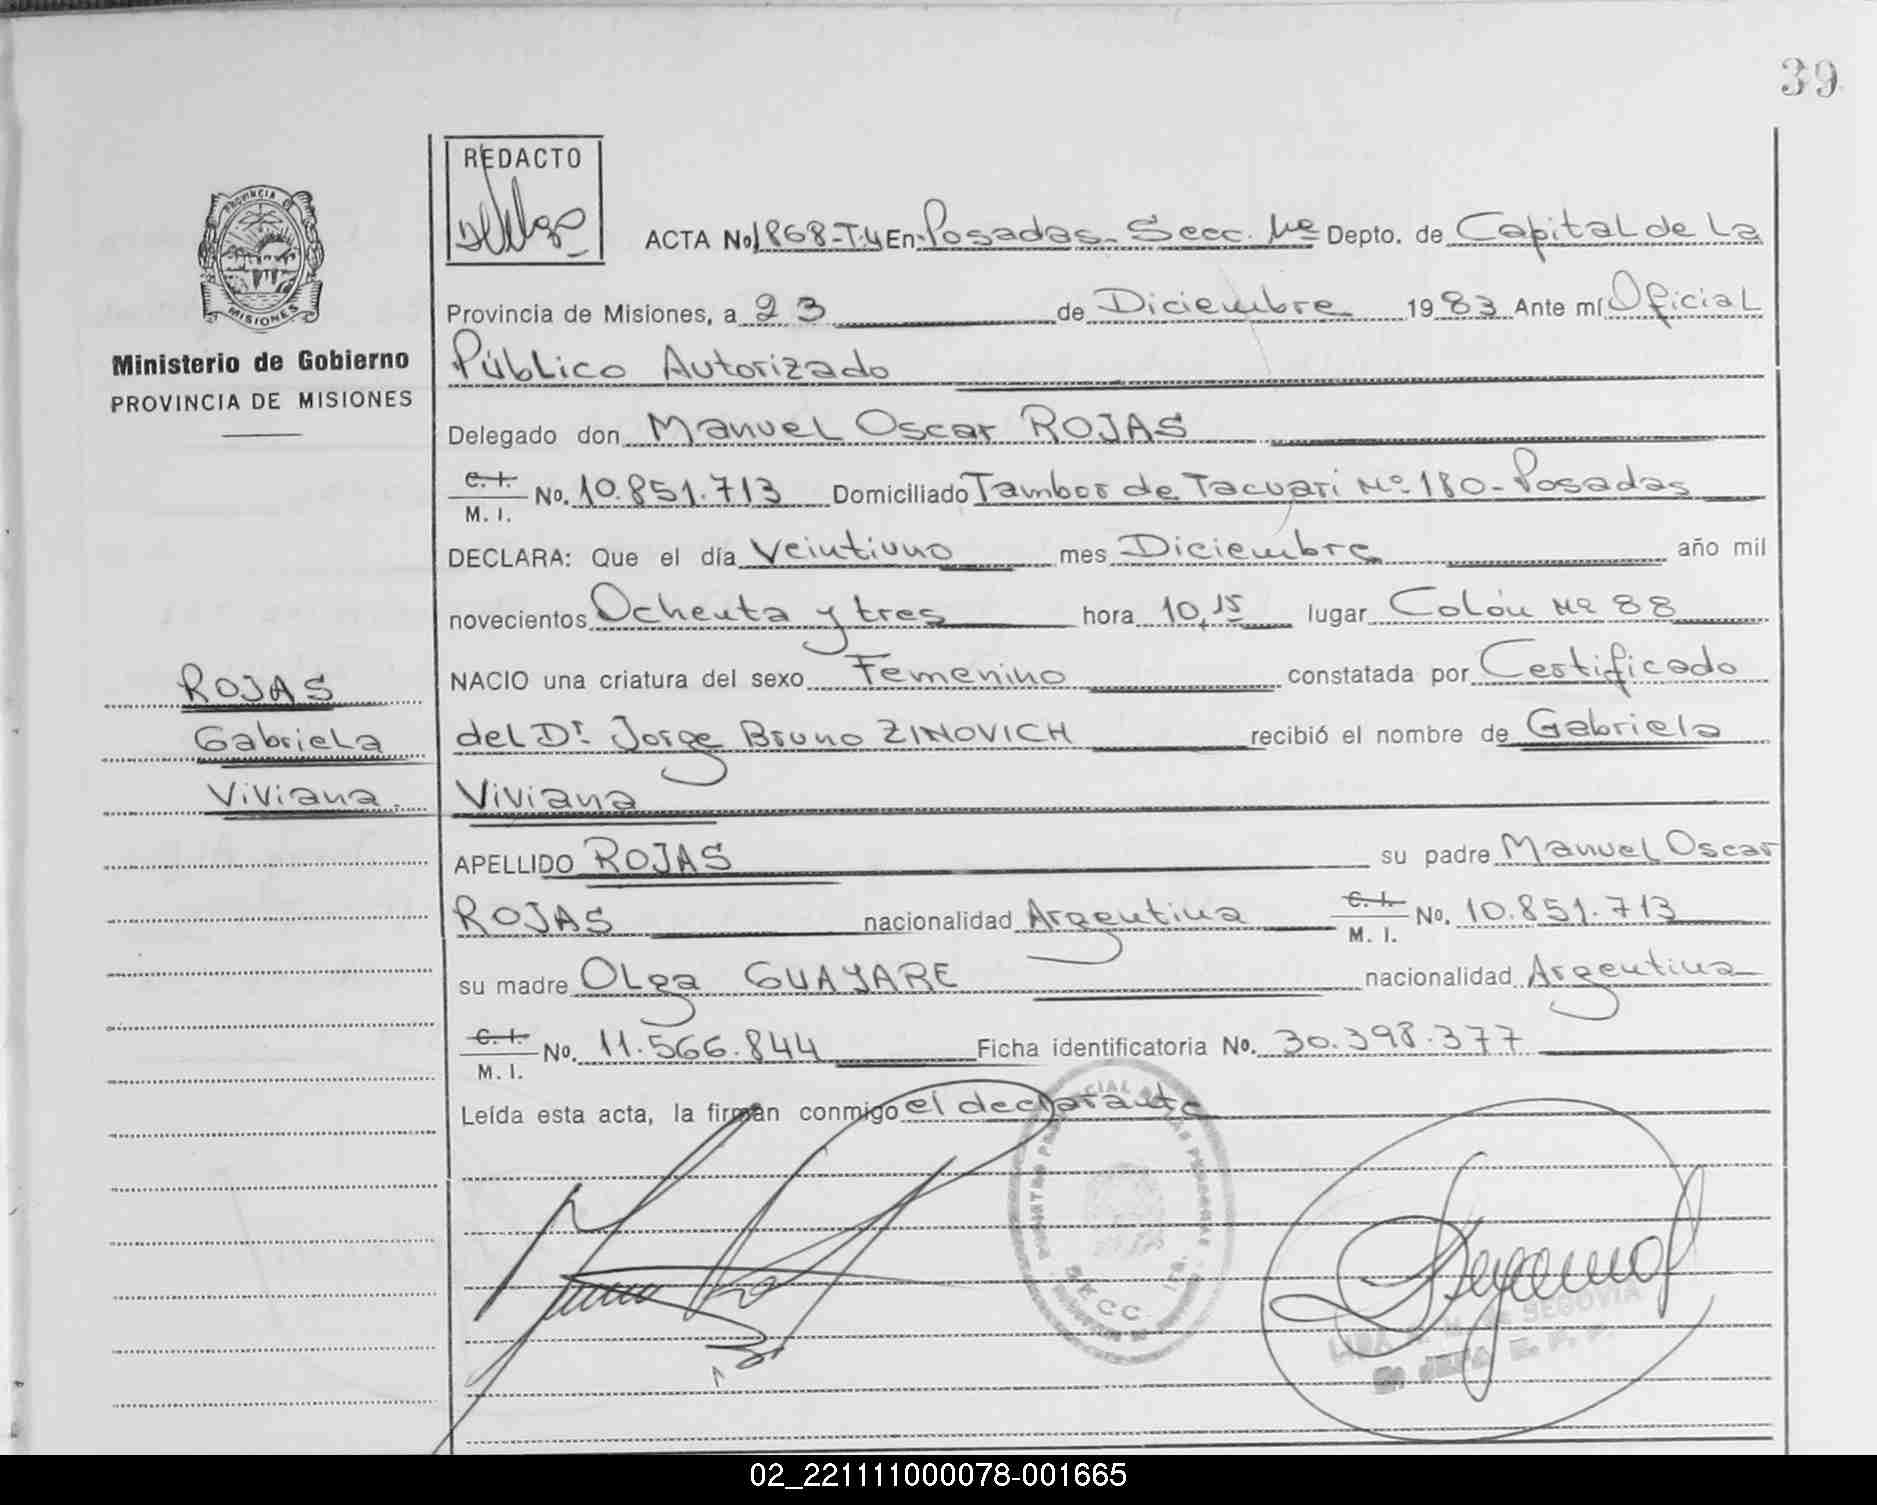 39
REDACTO
PROVINCIA DE
MISIONES
Ministerio de Gobierno
PROVINCIA DE MISIONES
ACTA No. 1868-T.4 En Posadas- Secc. 1ra Depto. de Capital de La
Provincia de Misiones, a 23 de Diciembre 1983 Ante mí Oficial
Público Autorizado
Delegado don Manuel Oscar ROJAS
C. I. M. I. No. 10.851.713 Domiciliado Tambor de Tacuari Nº 180- Posadas
DECLARA: Que el día Veintiuno mes Diciembre año mil
novecientos Ochenta y tres hora 10,15 lugar Colón Nº 88
NACIO una criatura del sexo Femenino constatada por Certificado
del Dr. Jorge Bruno ZINOVICH recibió el nombre de Gabriela
Viviana
APELLIDO ROJAS su padre Manuel Oscar
ROJAS nacionalidad Argentina C. I. M. I. No. 10.851.713
su madre Olga GUAYARE nacionalidad Argentina
C. I. M. I. No. 11.566.844 Ficha identificatoria No. 30.398.377
Leída esta acta, la firman conmigo el declarante
ROJAS
Gabriela
Viviana
SECC. 1ra.
SEGOVIA
JEFA
02_221111000078-001665